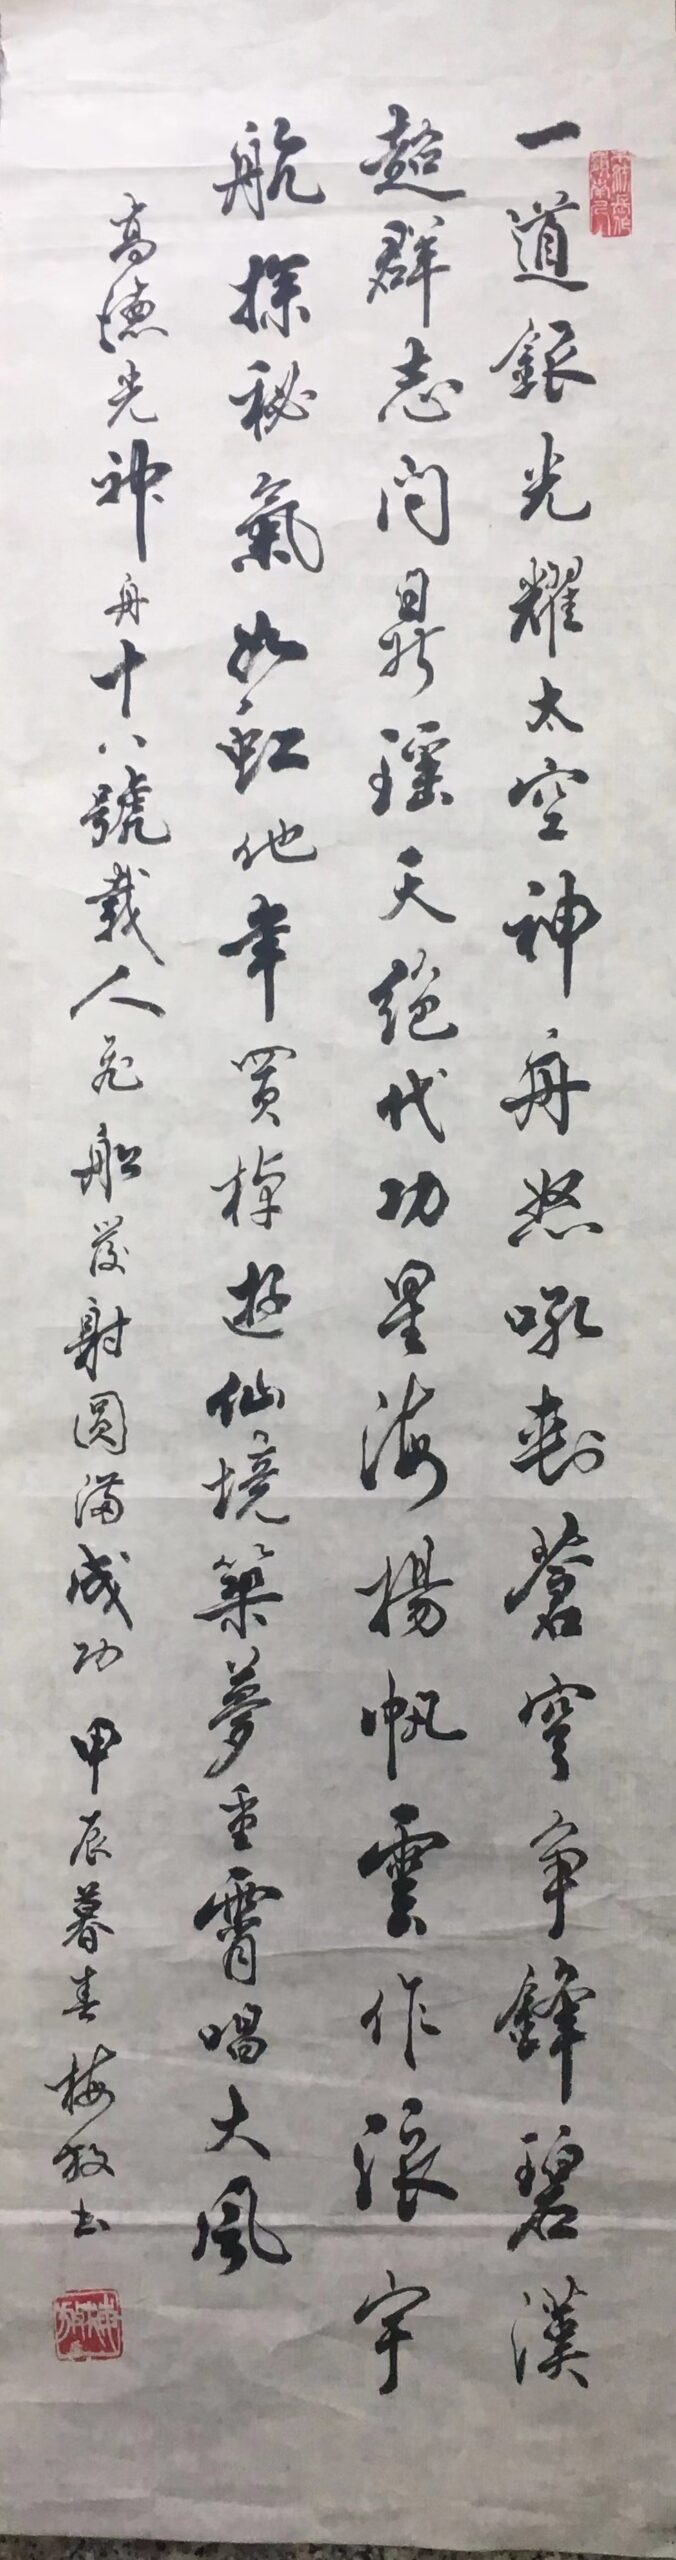 一道銀光耀太空神舟怒吼刺蒼穹争鋒碧漢
超群志問鼎瑶天絕代功星海揚帆雲作浪宇
航探秘氣如虹他年買棹遊仙境築夢重霄唱大風
高德光神舟十八號载人飛船發射圆满成功甲辰暮春梅放书